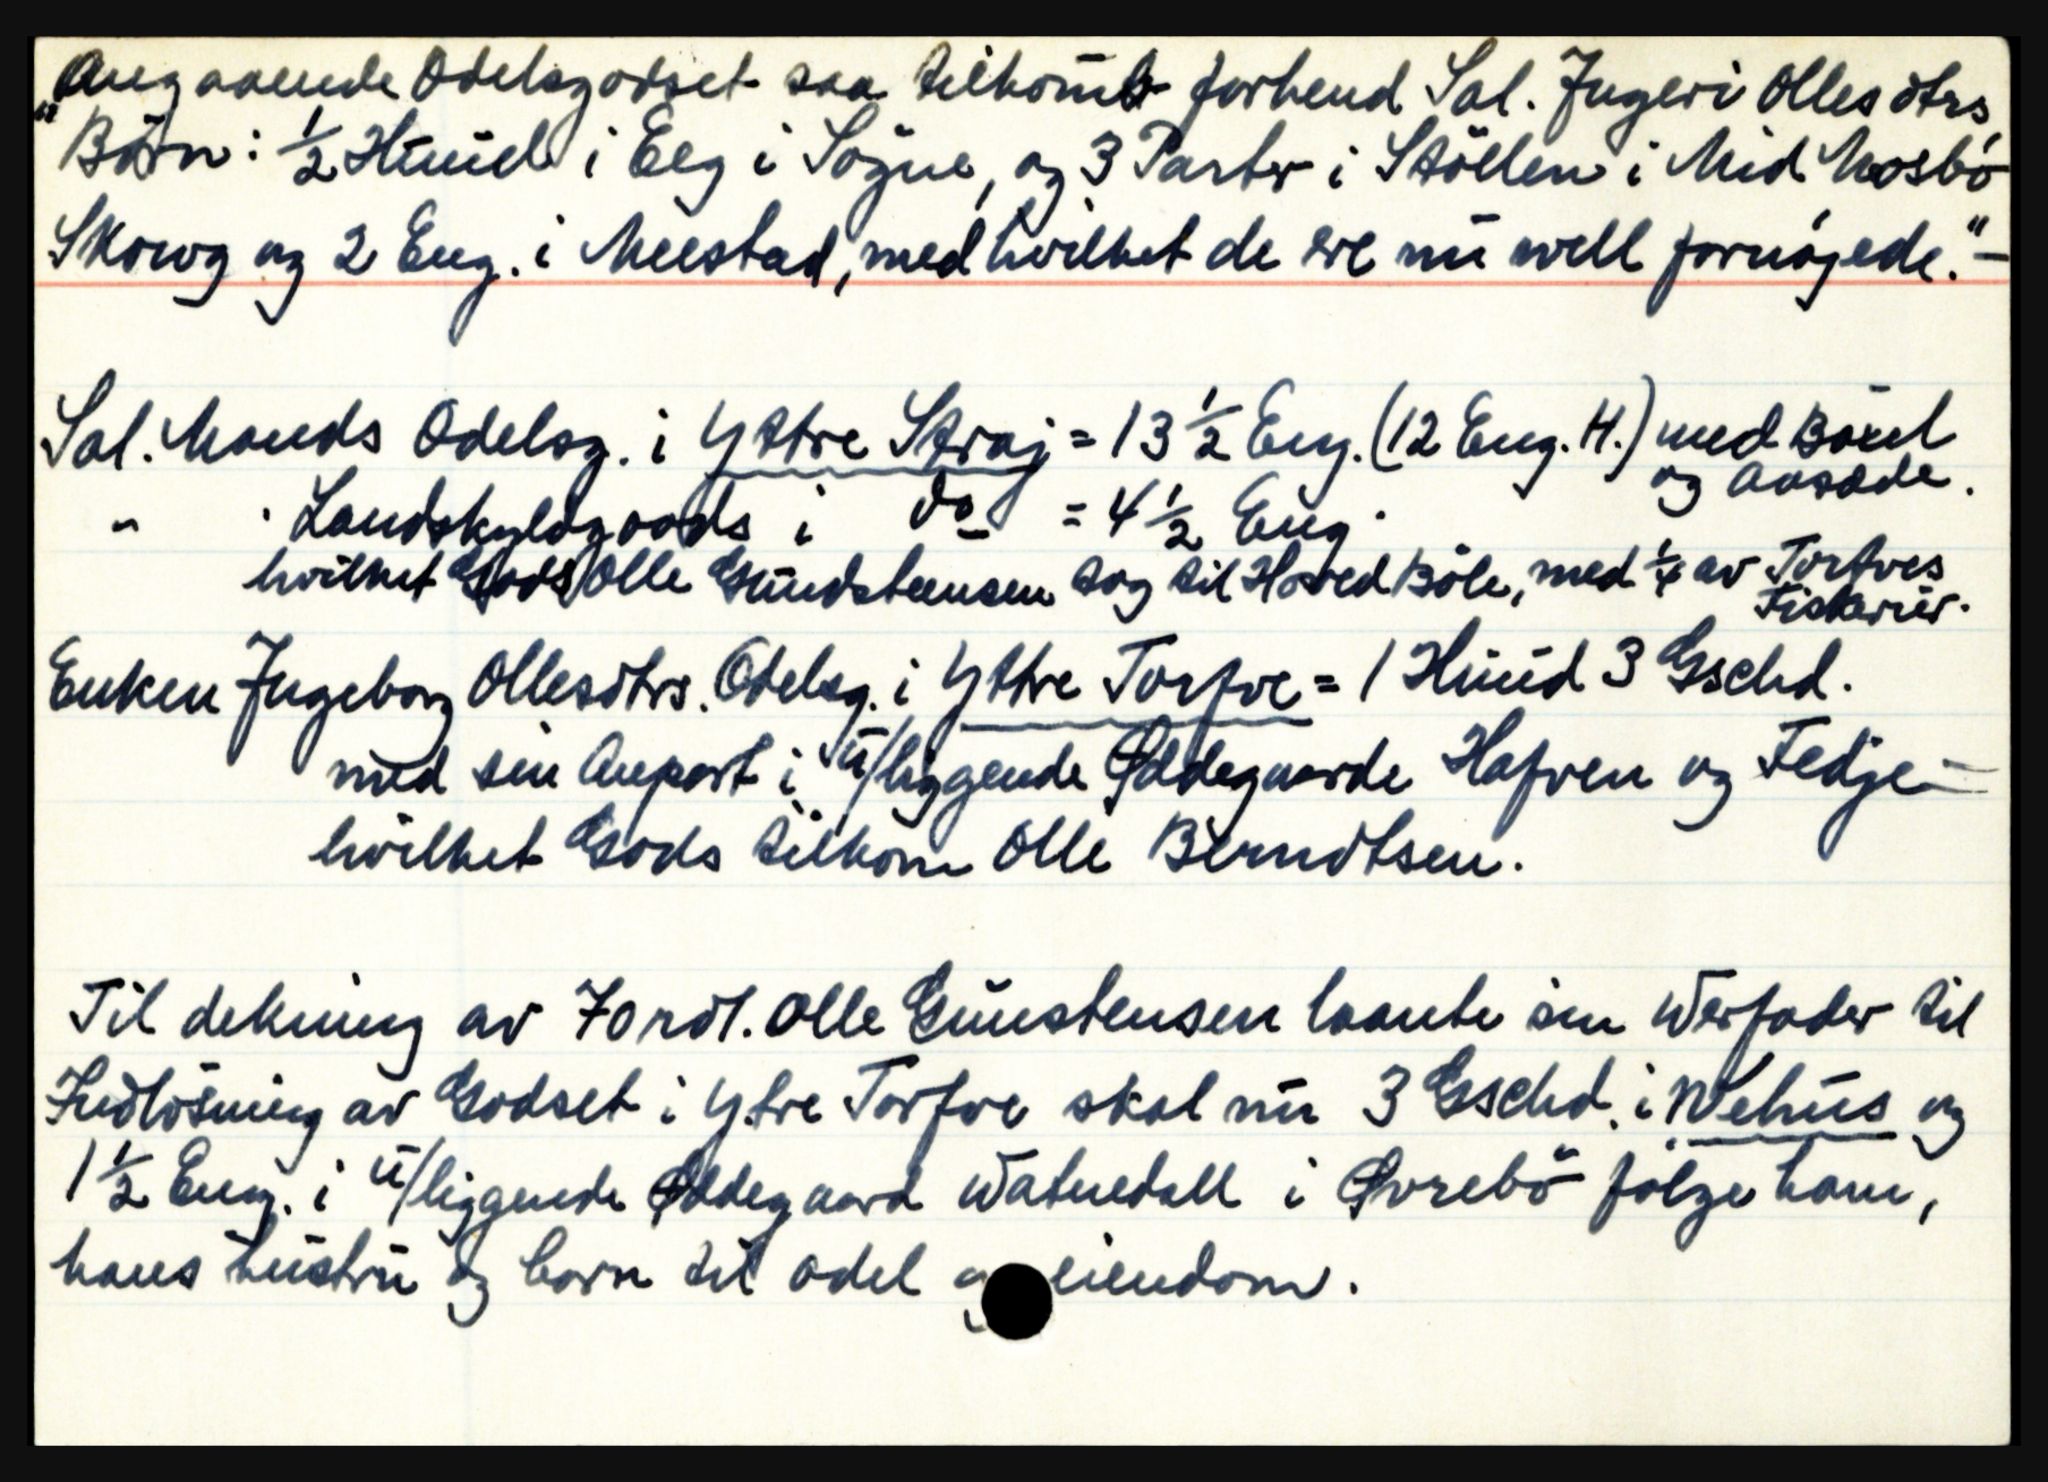 "Angaaende Odelsgodset saa tilkomb forhend Sal. Ingeri Ollesdtrs
Börn: 1/2 Huud i Eeg i Sögne, og 3 Parter i Stöllen i Mid Mosbö
Skowg og 2 Eng. i Meestad, med hvilket de ere nu well fornöjede." -
Sal. Mands Odelsg. i Yttre Straj = 13 1/2 Eng. (12 Eng. H.) med Böxel
og Aasæde.
" . Landskyldgoods i do = 4 1/2 Eng.
hvilket Gods Olle Gundsteensen tog til Hoved Böle, med 1/4 av Torfves
Fiskerier.
Enken Ingeborg Ollesdtrs. Odelsg. i Yttre Torfve = 1 Huud 3 Gschd.
med sin Anpart i u/liggende Øddegaarde Hafven og Fedje -
hvilket Gods tilkom Olle Berndtsen.
Til dekning av 70 rdl. Olle Gunstensen laante sin Werfader til
Indlösning av Godset i Ytre Torfve skal nu 3 Gschd. i Wehus og
1 1/2 Eng. i u/liggende Øddegaard Watnedall i Øvrebö fölge ham,
hans hustru og born til odel og eiendom.